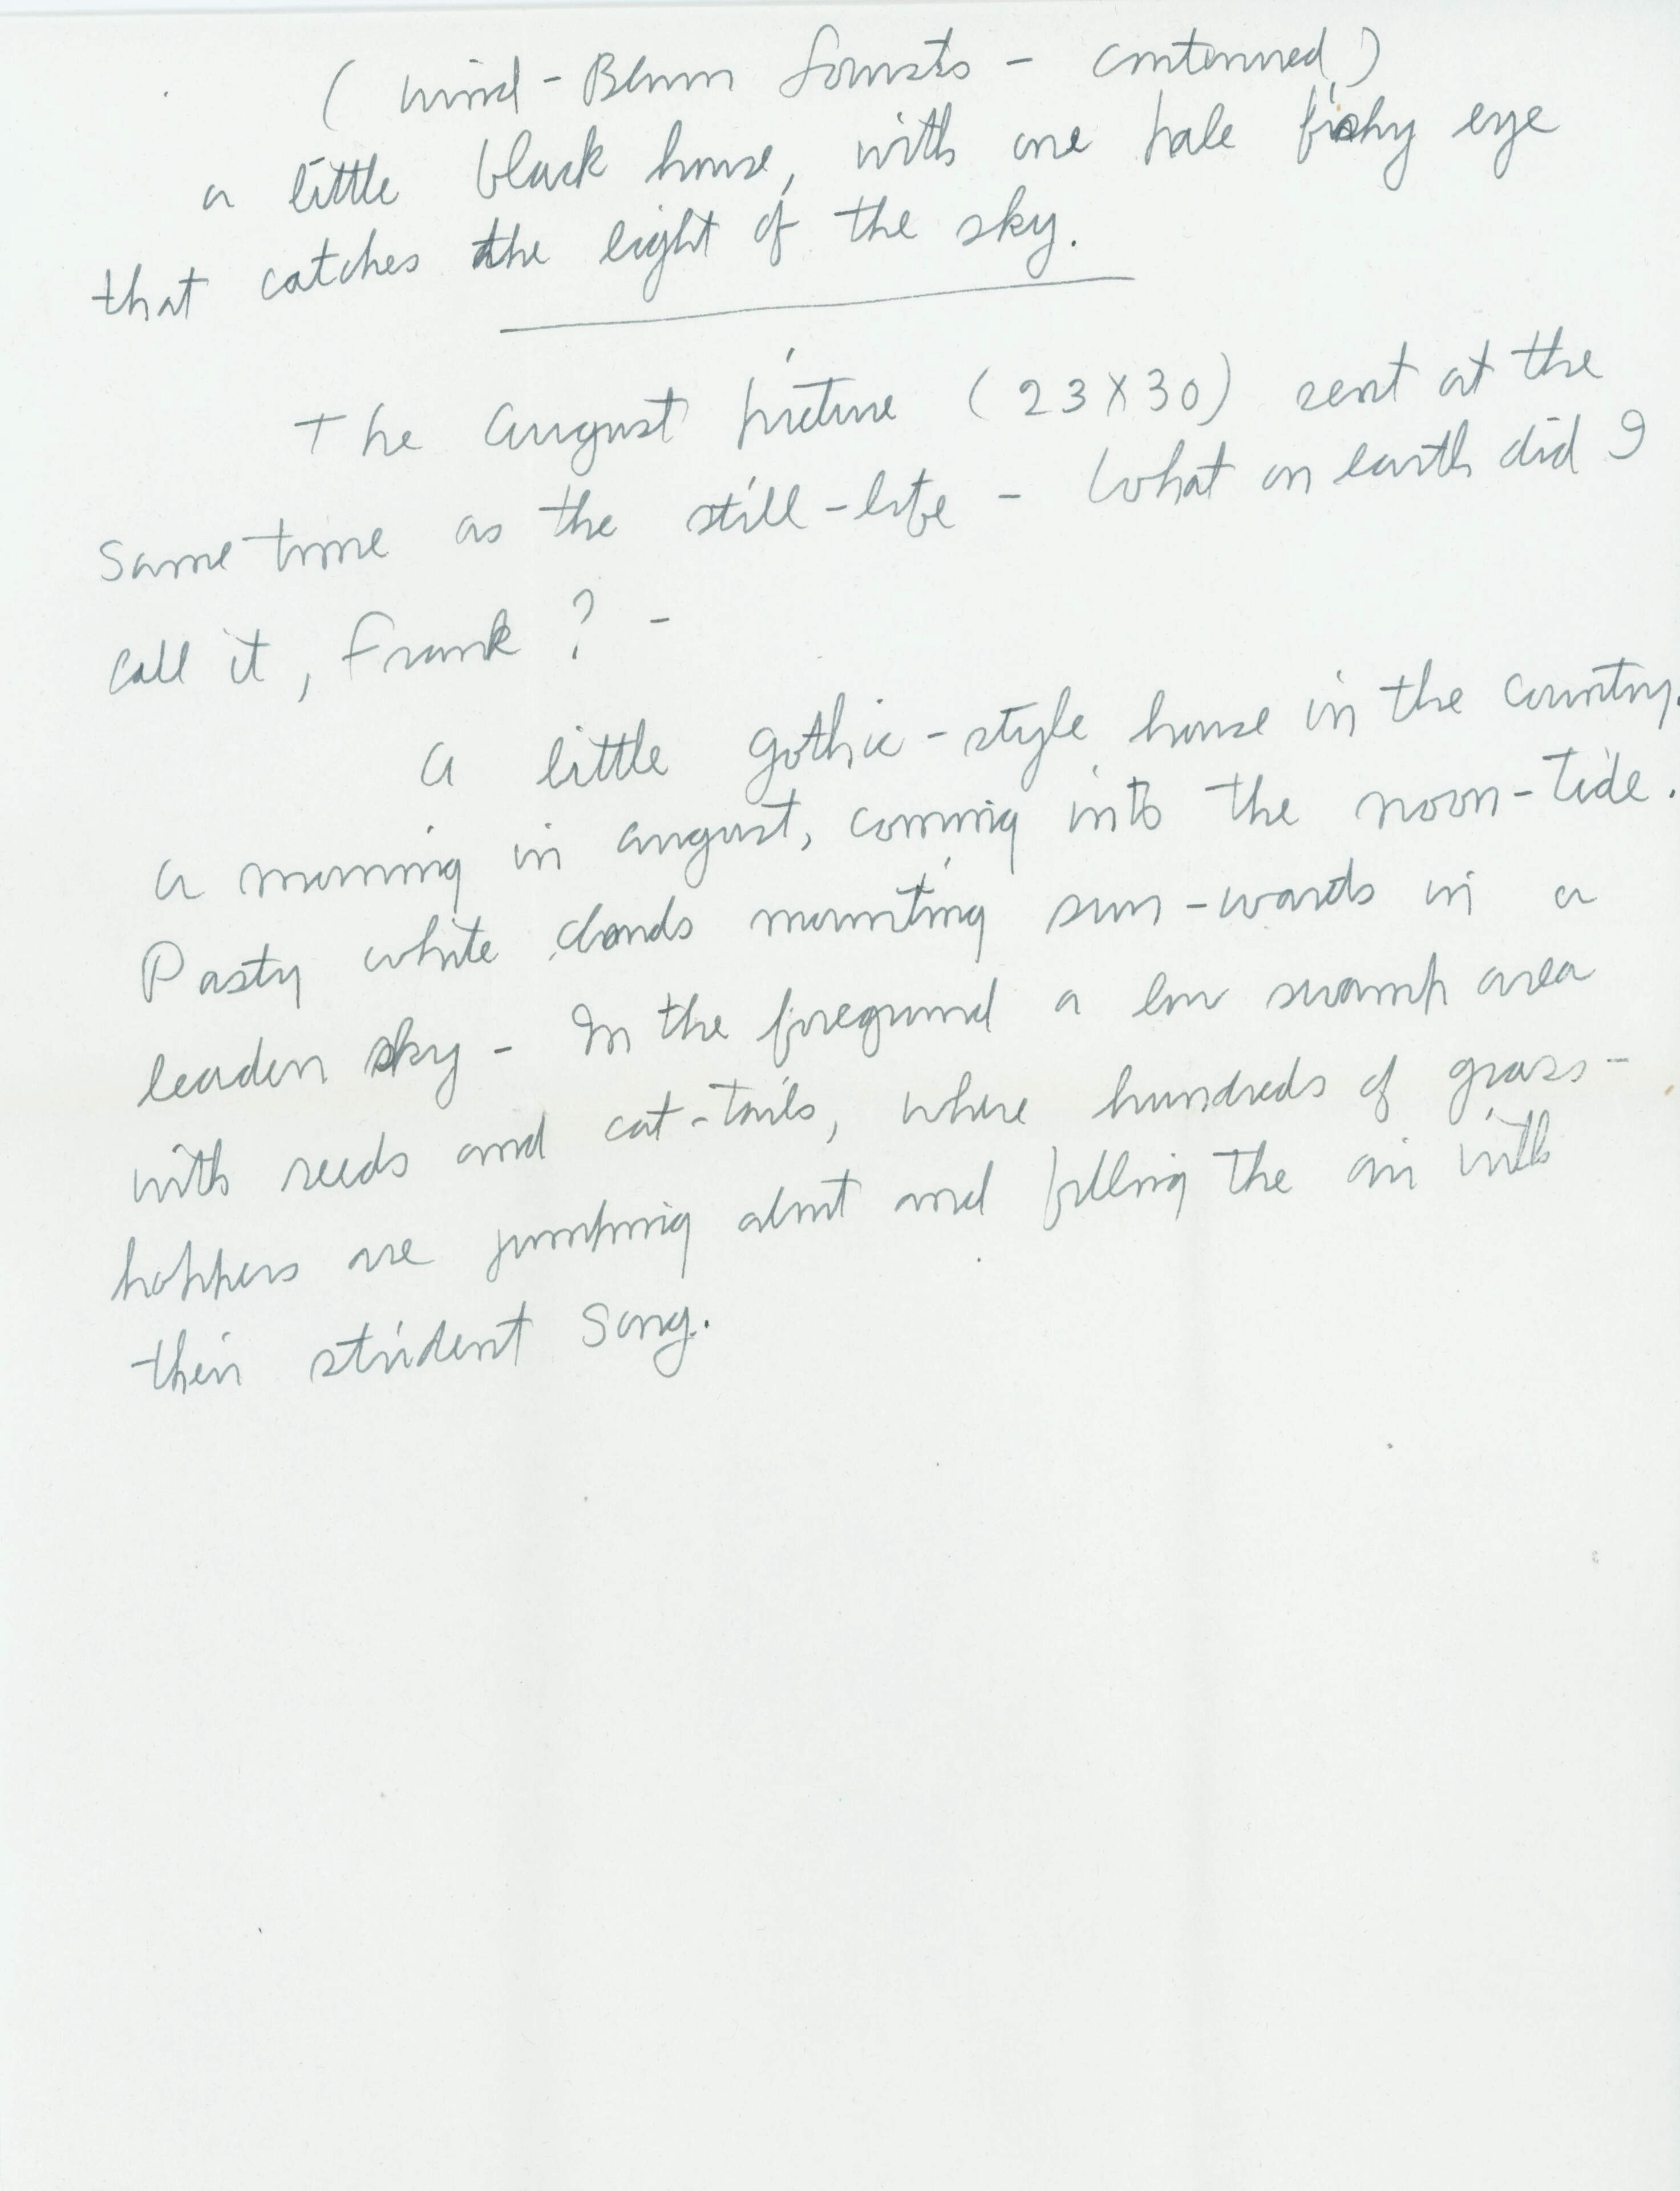 ( Wind-Blown Forests - continued )
a little black house, with one pale fishy eye
that catches the light of the sky.
The August picture (23X30) sent at the
same time as the still-life - What on earth did I
call it, Frank ? -
A little gothic-style house in the country.
A morning in August, coming into the noon-tide.
Pasty white clouds mounting sun-wards in a
leaden sky - In the foreground a low swamp area
with reeds and cat-tails, where hundreds of grass-
hoppers are jumping about and filling the air with
their strident song.